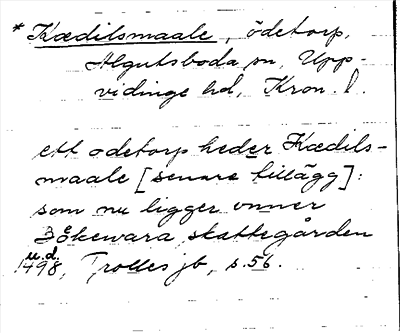 * Kædilsmaale, ödetorp,
Algutsboda sn, Upp-
vidinge hd, Kron. l.
ett ødetorp heder Kædils-
maale [senare tillägg]:
som nu ligger vnner
skattegården
u.d.
1498, Trolles jb, s. 56.